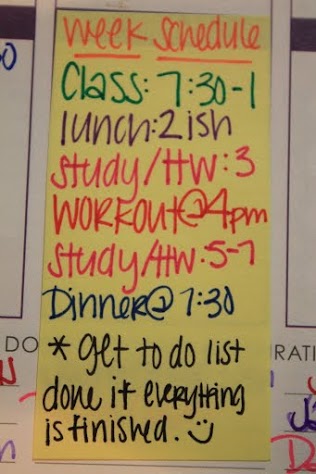 week schedule
Class: 7:30-1
lunch: 2 ish
study/HW: 3
WORKOUT@4pm
study/HW: 5-7
Dinner@ 7:30
* get to do list
done if everything
is finished.
DO